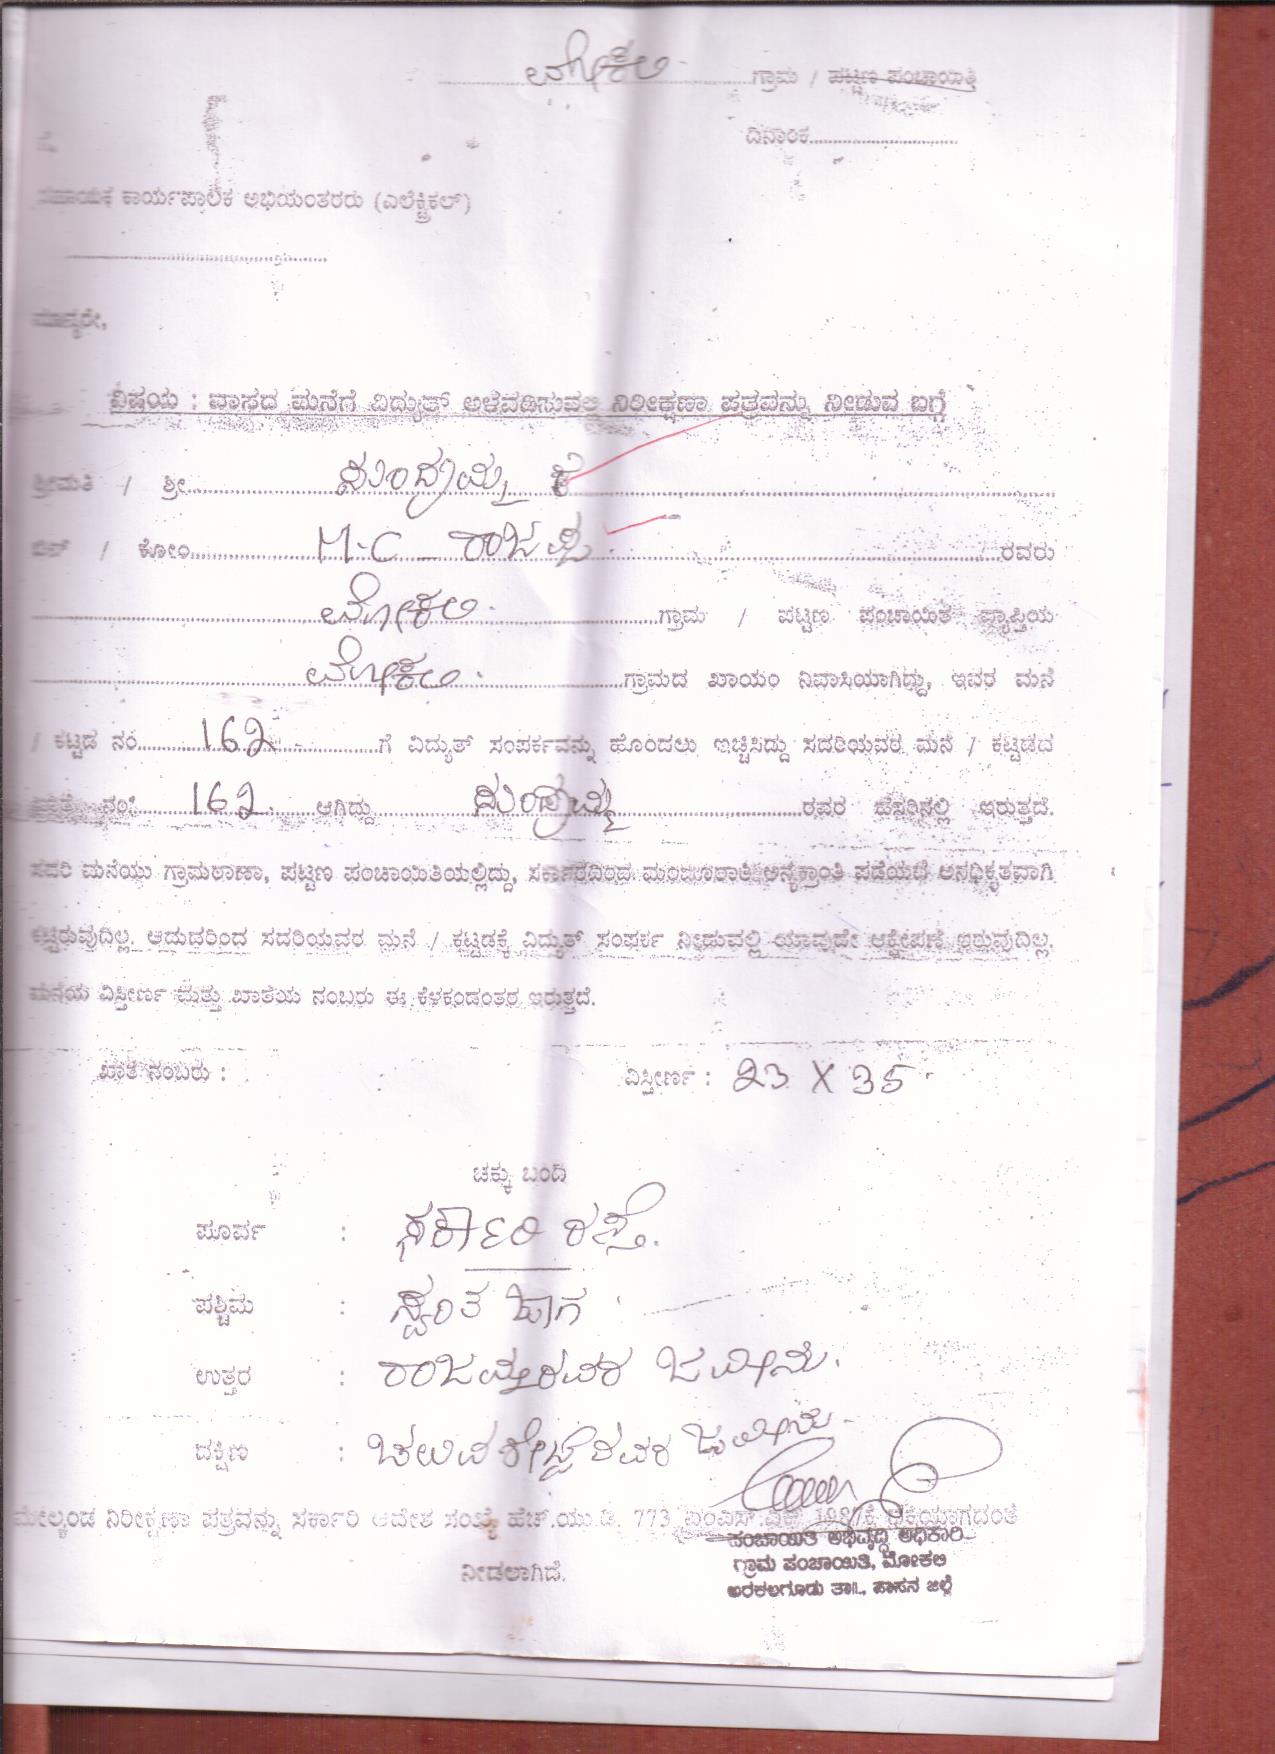 ಮೋಕಲಿ ಗ್ರಾಮ / ಪಟ್ಟಣ ಪಂಚಾಯಿತಿ
ದಿನಾಂಕ
ಸಹಾಯಕ ಕಾರ್ಯಪಾಲಕ ಅಭಿಯಂತರರು (ಎಲೆಕ್ಟ್ರಿಕಲ್)
ಮಾನ್ಯರೇ,
ವಿಷಯ : ವಾಸದ ಮನೆಗೆ ವಿದ್ಯುತ್ ಅಳವಡಿಸುವಲ್ಲಿ ನಿರೀಕ್ಷಣಾ ಪತ್ರವನ್ನು ನೀಡುವ ಬಗ್ಗೆ
ಶ್ರೀಮತಿ / ಶ್ರೀ
ಬಿನ್ / ಕೋಂ M.C ರಾಜಪ್ಪ / ರವರು
ಮೋಕಲಿ ಗ್ರಾಮ / ಪಟ್ಟಣ ಪಂಚಾಯಿತಿ ವ್ಯಾಪ್ತಿಯ
ಮೋಕಲಿ ಗ್ರಾಮದ ಖಾಯಂ ನಿವಾಸಿಯಾಗಿದ್ದು, ಇವರ ಮನೆ
/ ಕಟ್ಟಡ ನಂ 162 ಗೆ ವಿದ್ಯುತ್ ಸಂಪರ್ಕವನ್ನು ಹೊಂದಲು ಇಚ್ಚಿಸಿದ್ದು ಸದರಿಯವರ ಮನೆ / ಕಟ್ಟಡದ
ಖಾತೆ ನಂ: 162 ಆಗಿದ್ದು ರವರ ಹೆಸರಿನಲ್ಲಿ ಇರುತ್ತದೆ.
ಸದರಿ ಮನೆಯು ಗ್ರಾಮಠಾಣಾ, ಪಟ್ಟಣ ಪಂಚಾಯಿತಿಯಲ್ಲಿದ್ದು, ಸರ್ಕಾರದಿಂದ ಮಂಜೂರಾತಿ ಅನ್ಯಕ್ರಾಂತಿ ಪಡೆಯದೆ ಅನಧಿಕೃತವಾಗಿ
ಕಟ್ಟಿರುವುದಿಲ್ಲ. ಆದುದರಿಂದ ಸದರಿಯವರ ಮನೆ / ಕಟ್ಟಡಕ್ಕೆ ವಿದ್ಯುತ್ ಸಂಪರ್ಕ ನೀಡುವಲ್ಲಿ ಯಾವುದೇ ಆಕ್ಷೇಪಣೆ ಇರುವುದಿಲ್ಲ.
ಮನೆಯ ವಿಸ್ತೀರ್ಣ ಮತ್ತು ಖಾತೆಯ ನಂಬರು ಈ ಕೆಳಕಂಡಂತರ ಇರುತ್ತದೆ.
ಖಾತೆ ನಂಬರು : ವಿಸ್ತೀರ್ಣ : 23 X 35
ಚಕ್ಕು ಬಂದಿ
ಪೂರ್ವ : ಸರ್ಕಾರಿ ರಸ್ತೆ.
ಪಶ್ಚಿಮ : ಸ್ವಂತ ಜಾಗ
ಉತ್ತರ : ರಾಜಪ್ಪರವರ ಜಮೀನು.
ದಕ್ಷಿಣ : ಜಮೀನು
ಮೇಲ್ಕಂಡ ನಿರೀಕ್ಷಣಾ ಪತ್ರವನ್ನು ಸರ್ಕಾರಿ ಆದೇಶ ಸಂಖ್ಯೆ ಹೆಚ್.ಯು.ಡಿ. 773 ಎಂಎನ್ಎಕ್ಸ್ 1987ಕ್ಕೆ ಧಕ್ಕೆಯಾಗದಂತೆ
ನೀಡಲಾಗಿದೆ.
ಪಂಚಾಯಿತಿ ಅಭಿವೃದ್ಧಿ ಅಧಿಕಾರಿ
ಗ್ರಾಮ ಪಂಚಾಯಿತಿ, ಮೋಕಲಿ
ಅರಕಲಗೂಡು ತಾ||, ಹಾಸನ ಜಿಲ್ಲೆ